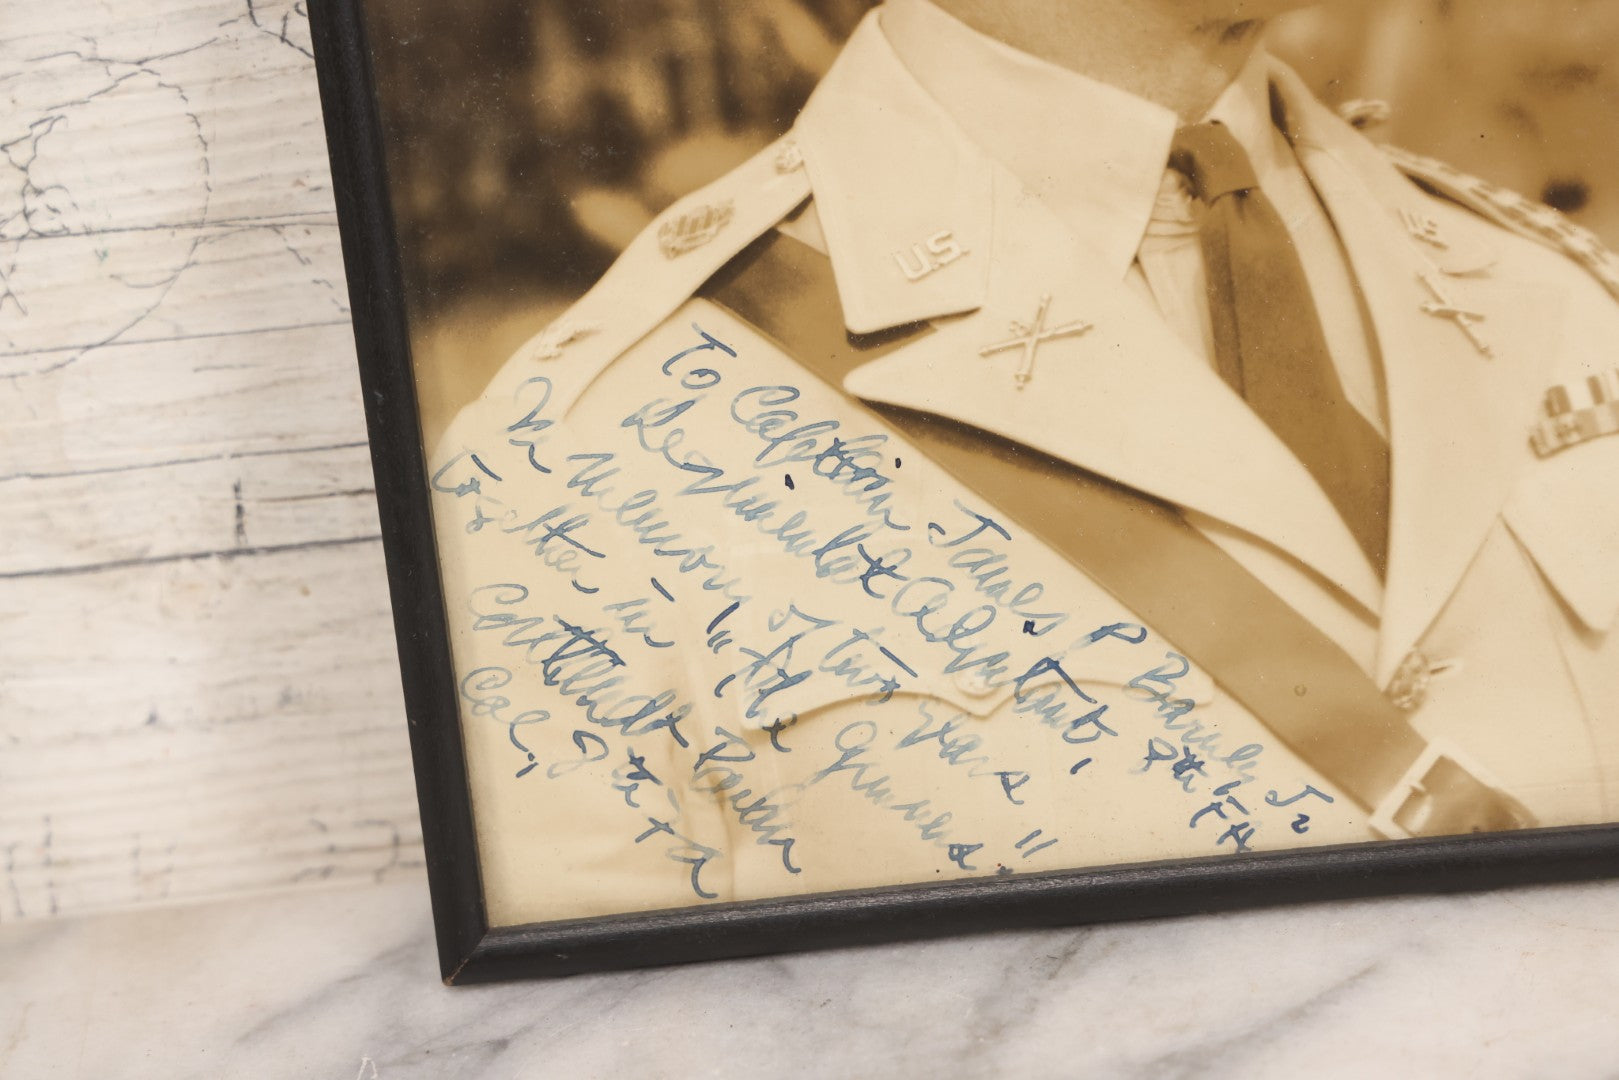 U.S.
U.S.
To Captain James P Barney Jr
Regimental Adjutant, 8th FA
In Memory of two years
together in "The Gunners"
Col., 8th FA